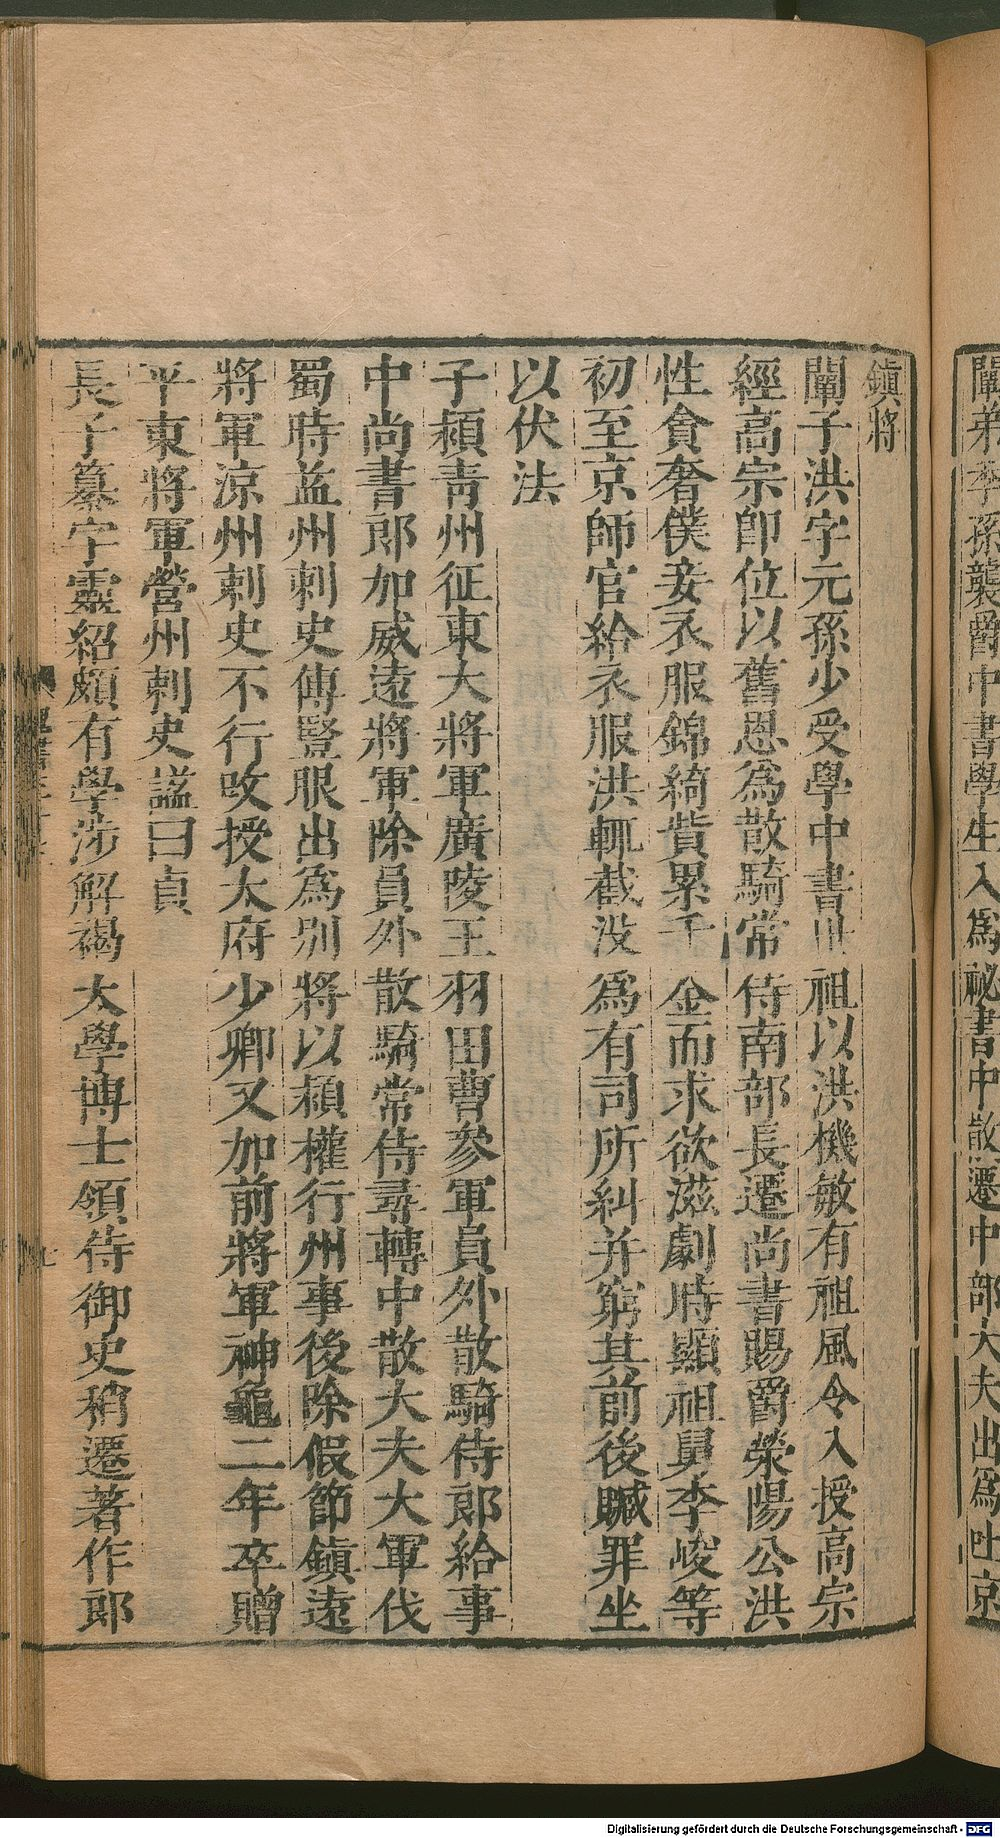 闡弟季孫襲爵中書學生入爲祕書中散遷中部大夫出爲吐京
鎮將
闡子洪字元孫少受學中書世祖以洪機敏有祖風令入授高宗
經高宗即位以舊恩爲散騎常侍南部長遷尚書賜爵滎陽公洪
性貪奢僕妾衣服錦綺貲累千金而求欲滋劇時顯祖舅李峻等
初至京師官給衣服洪輒截没爲有司所糾并窮其前後贓罪坐
以伏法
子頴青州征東大將軍廣陵王羽田曹參軍員外散騎侍郎給事
中尚書郎加威遠將軍除員外散騎常侍尋轉中散大夫大軍伐
蜀時益州刺史傅豎眼出爲别將以頴權行州事後除假節鎮遠
將軍涼州刺史不行改授太府少卿又加前將軍神龜二年卒贈
平東將軍營州刺史謚曰貞
長子纂字靈紹頗有學涉解褐太學博士領侍御史稍遷著作郎
七
Digitalisierung gefördert durch die Deutsche Forschungsgemeinschaft - DFG